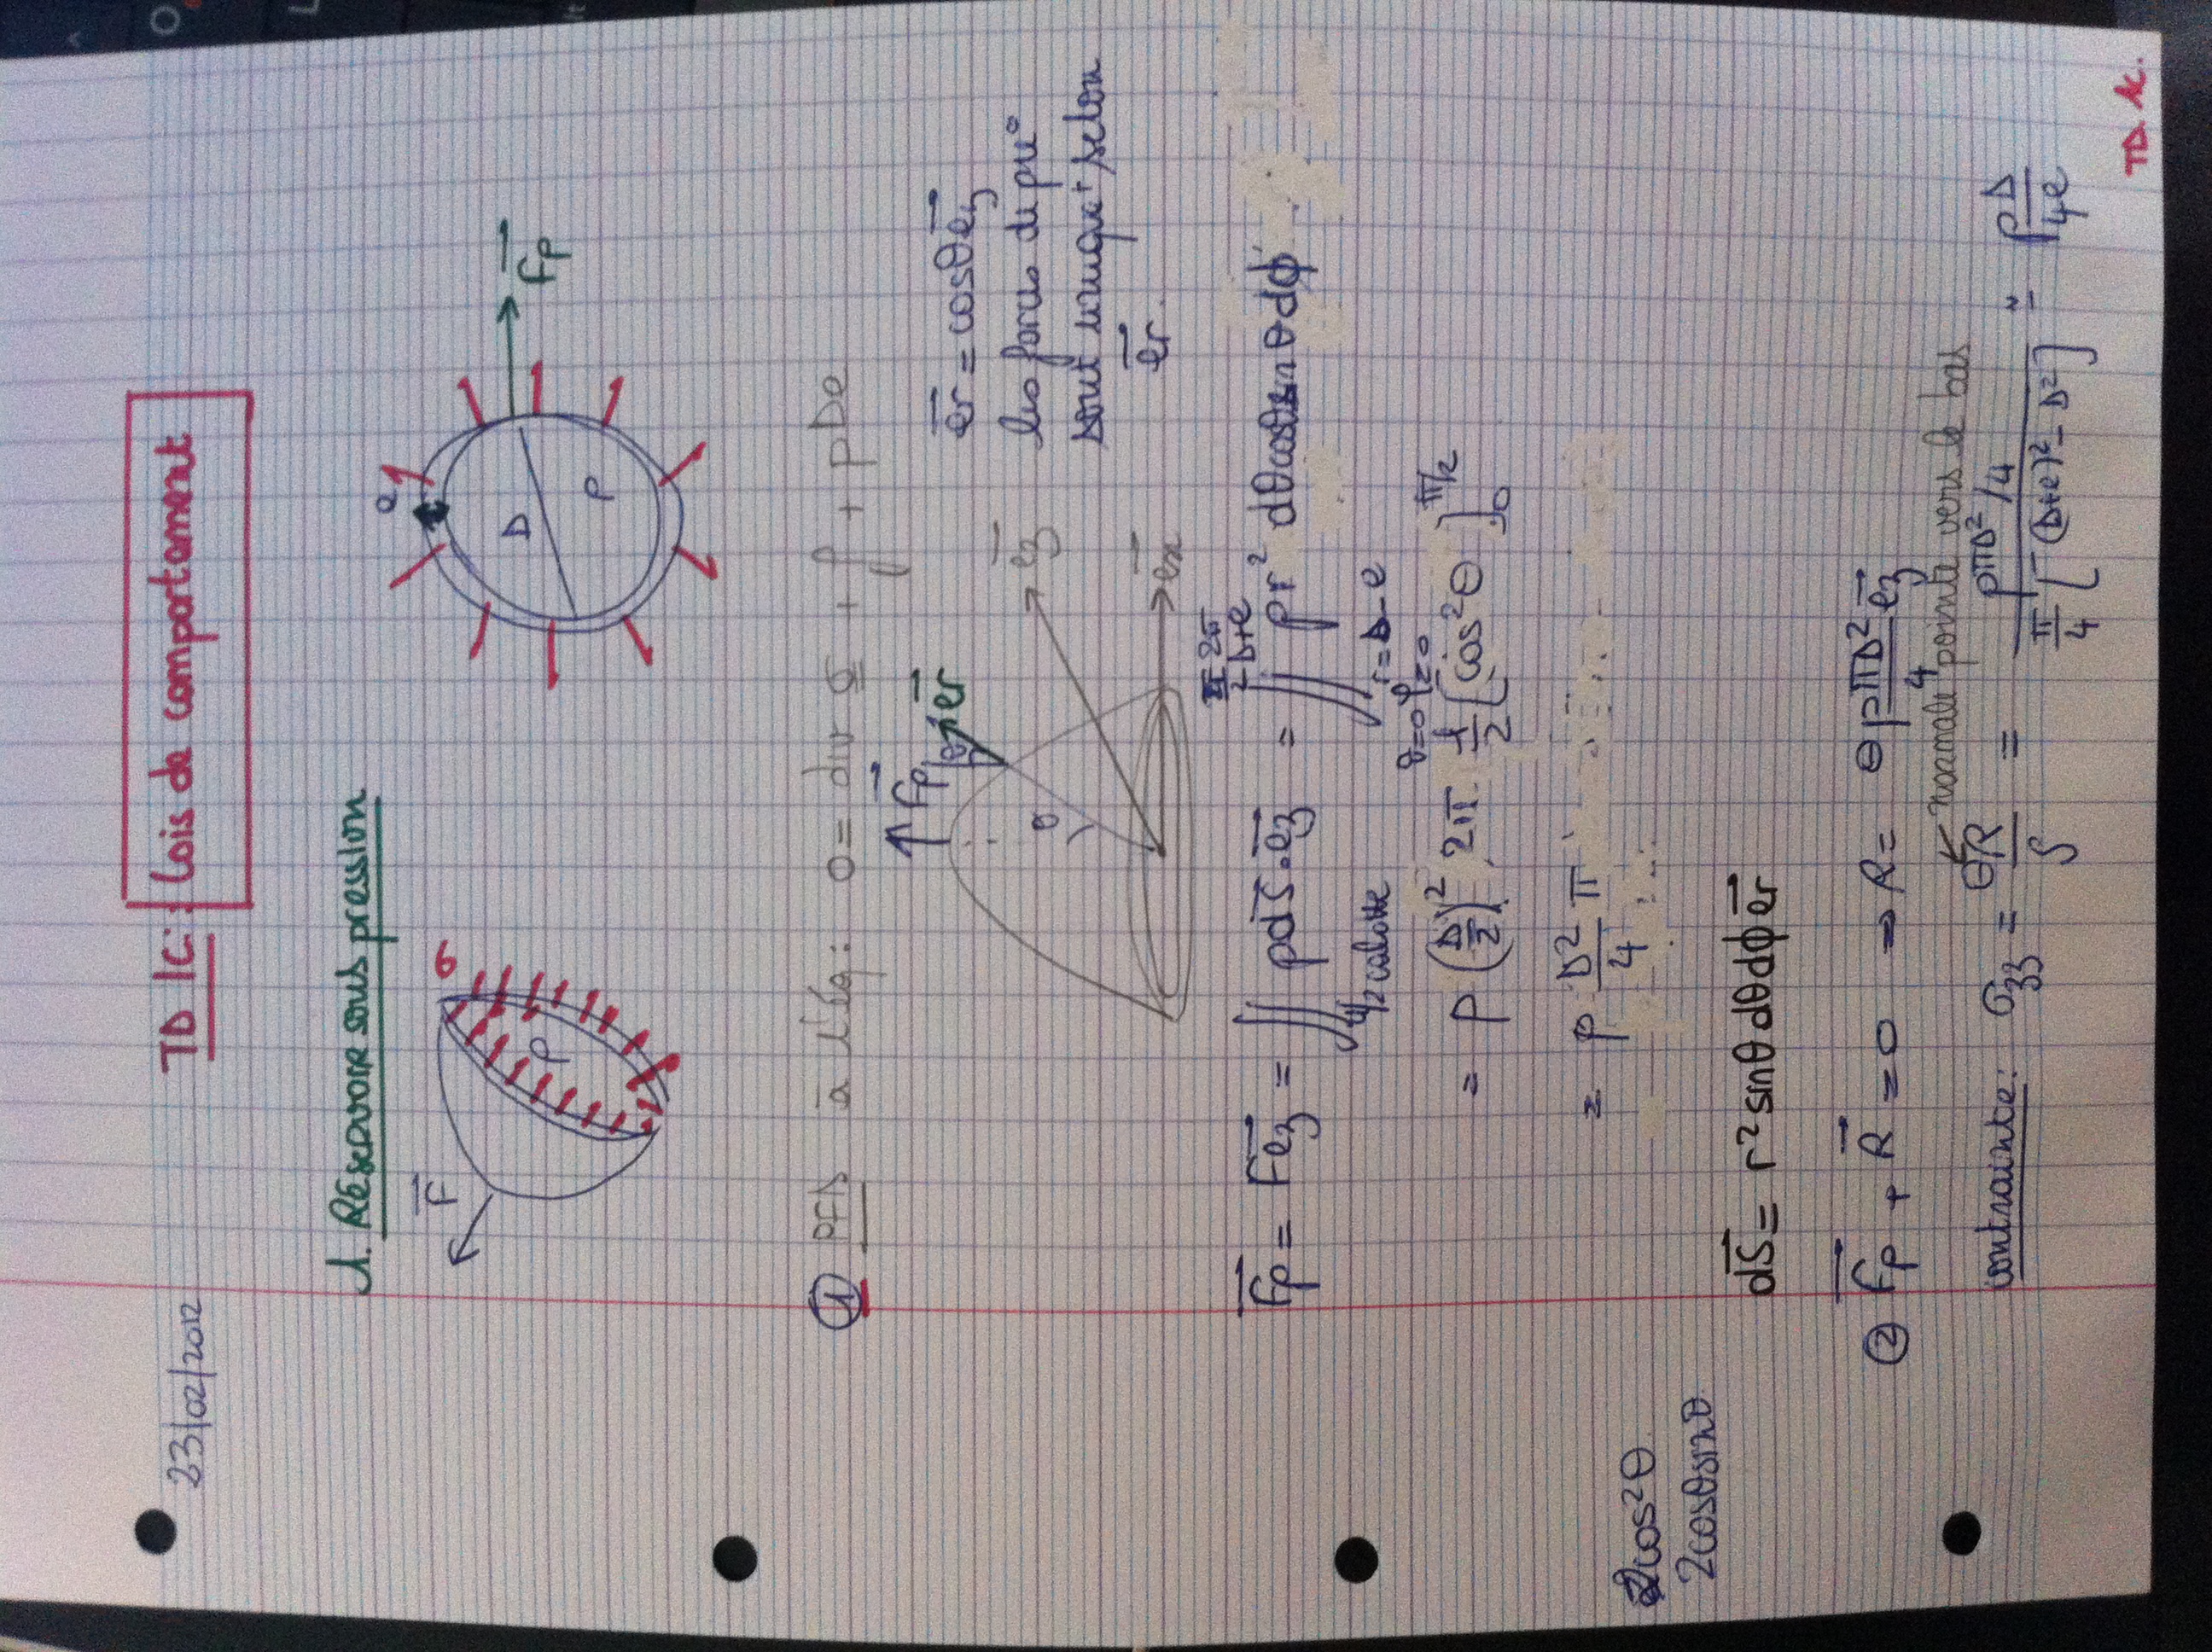 23/02/2012
TD 1C: Lois de comportement
1. Réservoir sous pression
F
σ
P
e
D
P
Fp
① PFD à l'éq: 0 = div σ + f + pDe
Fp
θ
er
er = cosθ ez
θ
ez
les forces de pre°
sont uniqt selon
er.
ex
Fp = Fez = ∬ pdS.ez = ∬ pr² dθcosθsinθdϕ
1/2 calotte
2π
D+e
r=D-e
θ=0 φ=0
= p (D/2)² . 2π . 1/2 [cos²θ]₀^π/2
= p D²/4 π
2cos²θ
2cosθsinθ
dS = r² sinθ dθdϕ er
② Fp + R = 0 → R = ⊖ pπD²/4 ez
normale pointe vers le bas
contrainte: σzz = ⊖R/S = (pπD²/4) / (π/4 [(D+e)² - D²]) ≃ pD/4e
TD 1C.